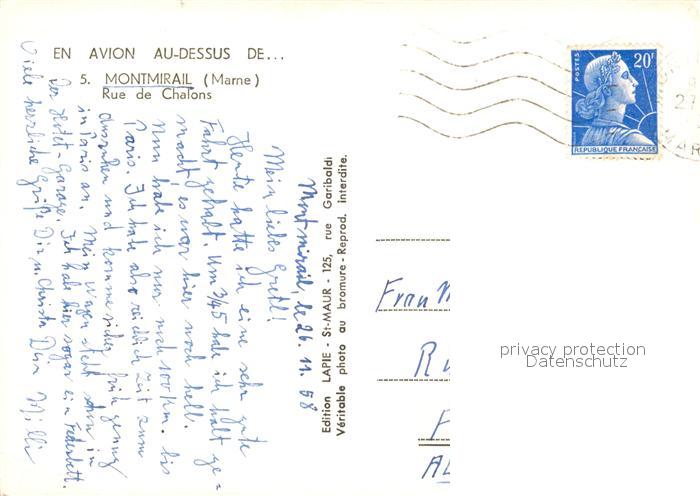 EN AVION AU-DESSUS DE...
5. MONTMIRAIL (Marne)
Rue de Chalons
Montmirail, le 26. 11. 58
Mein liebes Gretl!
Heute hatte ich eine sehr gute
Fahrt gehabt. Um 3/45 habe ich halt ge=
macht, es war hier noch hell.
Nun habe ich nur noch 100 km. bis
Paris. Ich habe also reichlich Zeit zum
ausruhen und komme sicher früh genug
in Paris an. Mein Wagen steht schon in
der Hotel-Garage. Ich habe hier sogar ein Federbett.
Viele herzliche Grüße Dir u. Christa Dein Willi
Edition LAPIE - St-MAUR - 125, rue Garibaldi
Véritable photo au bromure - Reprod. Interdite.
POSTES
20F
REPUBLIQUE FRANÇAISE
27
MAR
Frau
R
privacy protection
Datenschutz